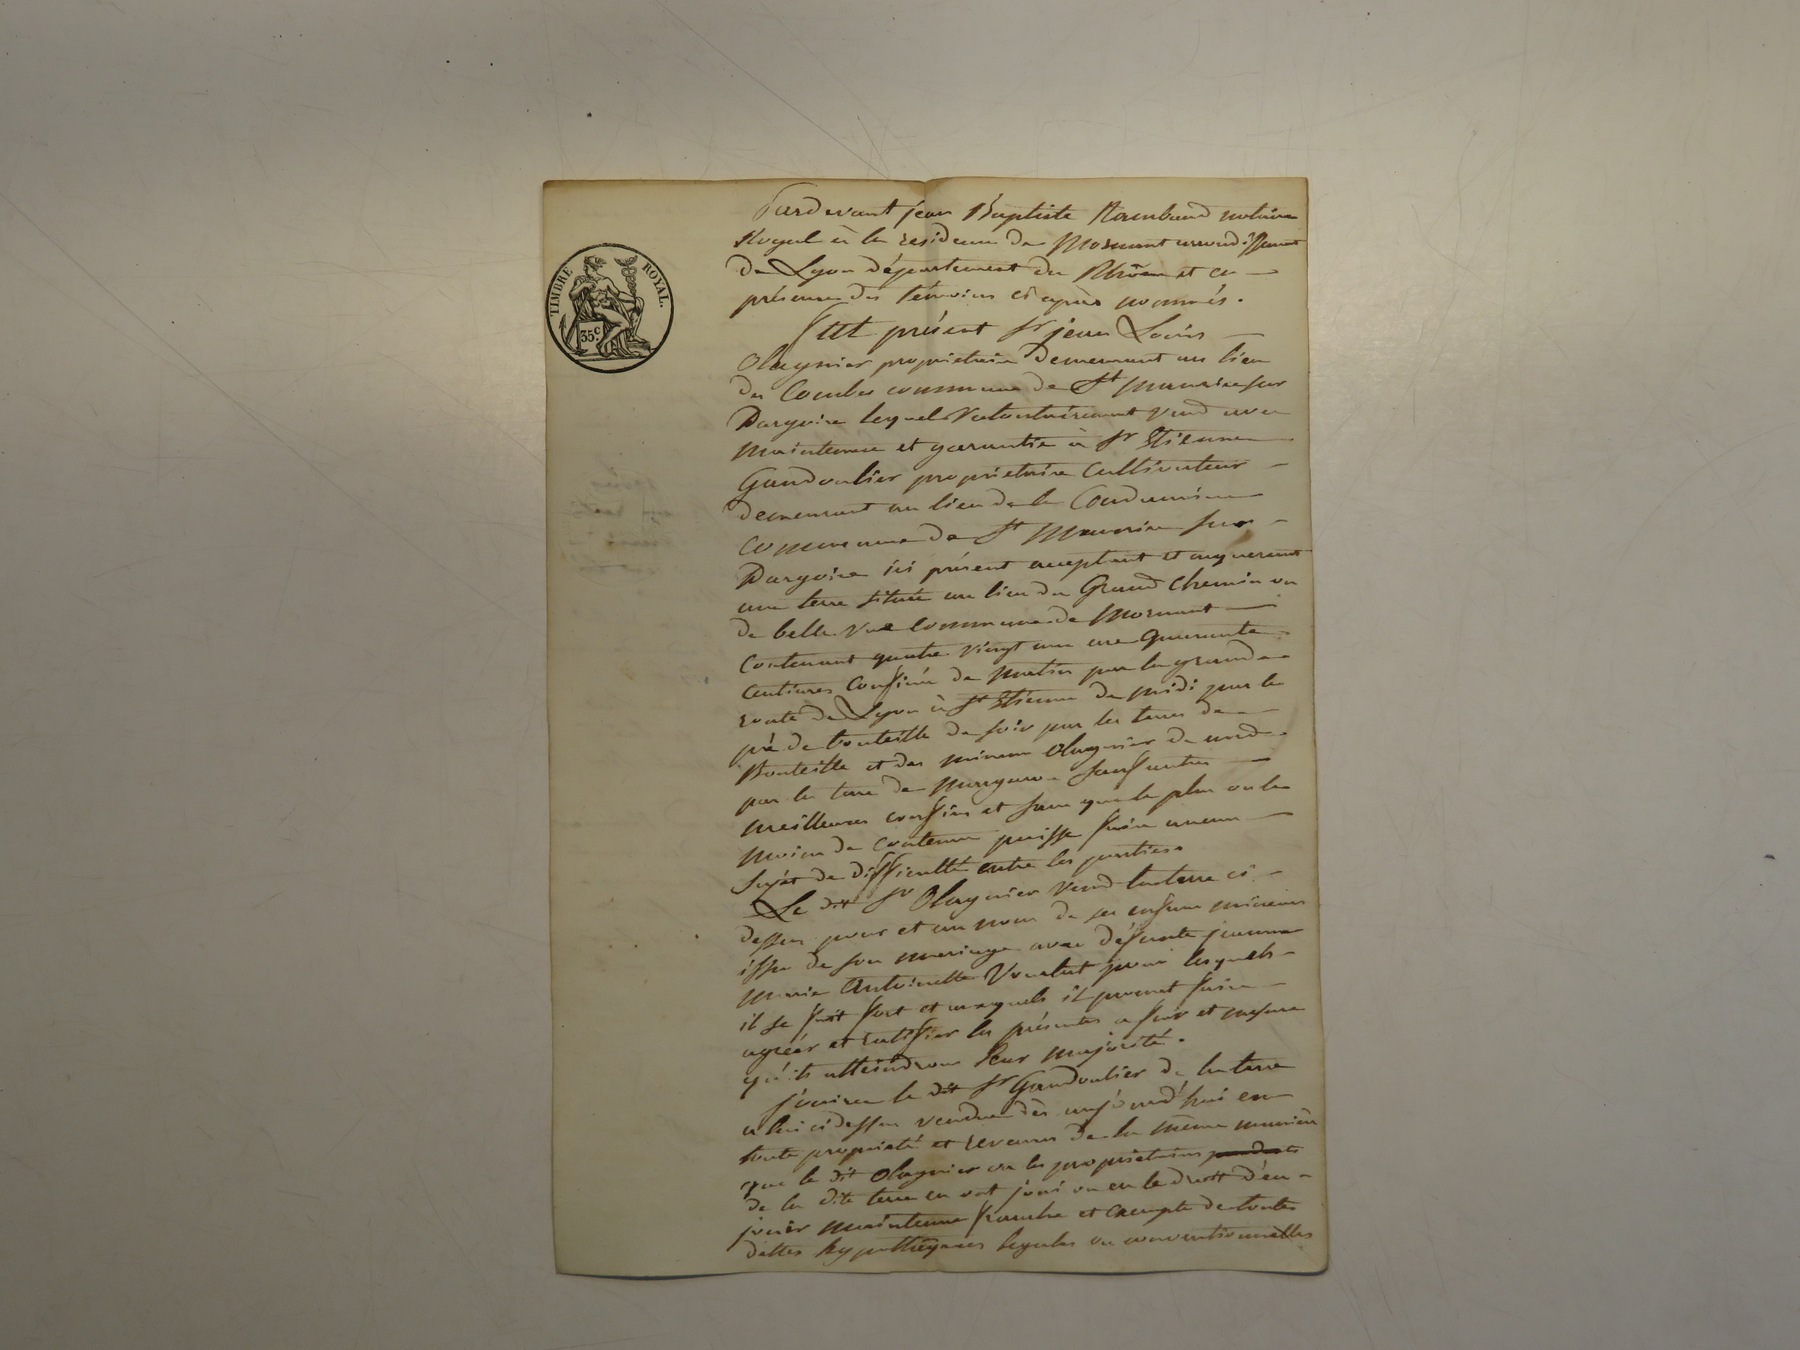 TIMBRE ROYAL.
35c.
Pardevant jean Baptiste Rambaud notaire
Royal à la residence de Mornant arrondissement
de Lyon département du Rhône et en
présence des témoins ci après nommés.
Fut présent Sr jean Louis
Olagnier propriétaire demeurant au lieu
des Combes commune de St Maurice sur
Dargoire lequel volontairement vend avec
maintenue et garantie à Sr Etienne
Gandoulier propriétaire cultivateur
demeurant au lieu de la Condamine
commune de St Maurice sur
Dargoire ici présent acceptant et acquerant
une terre située au lieu du Grand Chemin ou
de belle vue commune de Mornant
contenant quatre vingt un are quarante
centiares confinée de matin par la grande
route de Lyon à St Etienne de midi par le
pré de bouteille de soir par les terres de
Bouteille et des mineurs Olagnier de nord
par la terre de sauf autres
meilleurs confins et sans que le plus ou le
moins de contenu puisse faire aucun
sujet de difficulté entre les parties.
Le dit Sr Olagnier vend la terre ci
dessus pour et au nom de ses enfans mineurs
issu de son mariage avec défunte jeanne
marie Antoinette pour lesquels
il se fait fort et auxquels il promet faire
agréer et ratiffier les présentes a fur et mesure
qu'ils atteindront leur majorité.
jouira le dit Sr Gandoulier de la terre
a lui ci dessus vendue dès aujourd'hui en
toute propriété et revenus de la même manière
que le dit Olagnier ou les propriétaires
de la dite terre en ont joui ou eu le droit d'en
jouir maintenue franche et exempte de toutes
dettes hypothèques legales ou conventionnelles